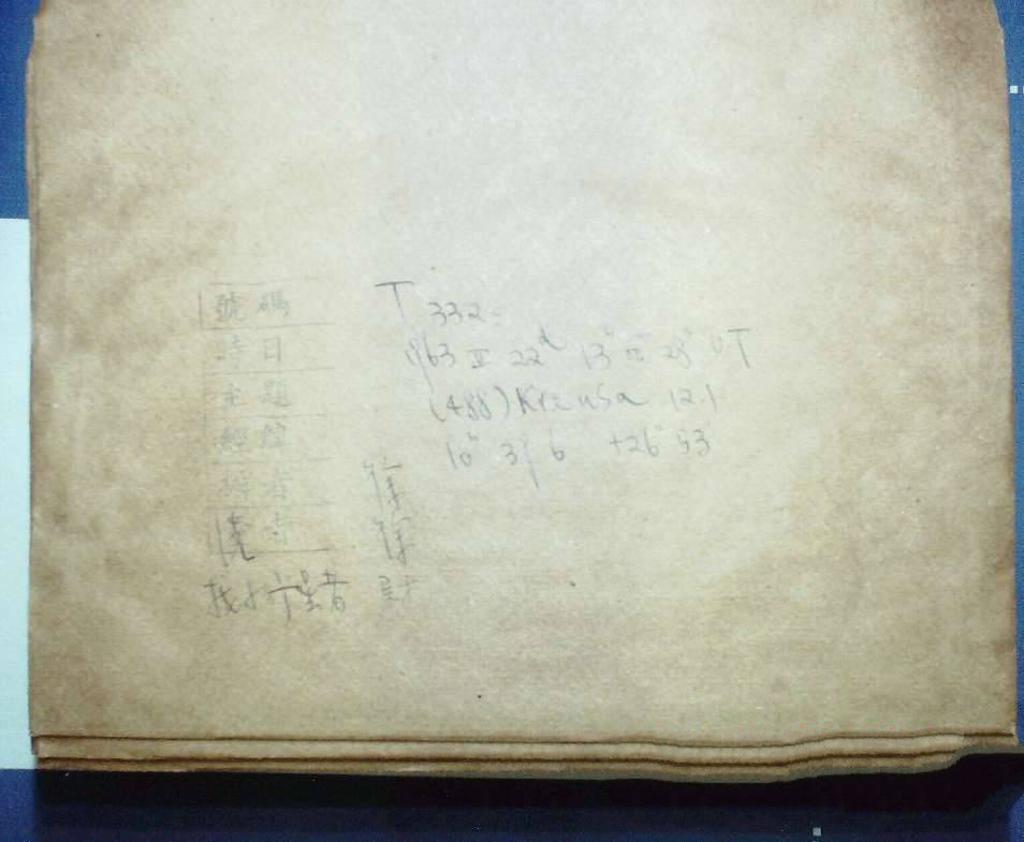 號碼 T 332
時日 1963 II 22d 13h m 28s UT
主題 (488) Kreusa 12.1
經緯 10h 31 6 +26° 53'
者 徐
徐
找小行星者